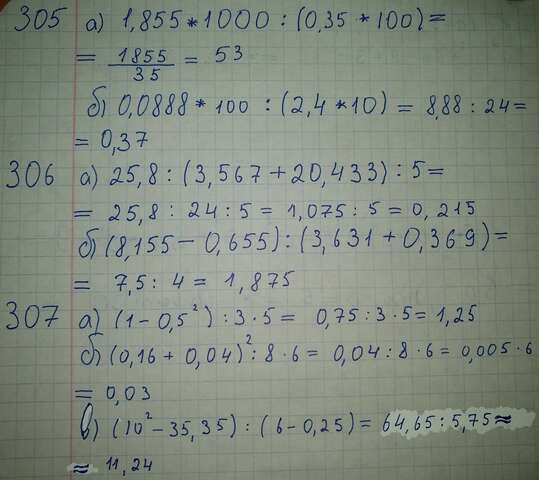 305 а) 1,855 * 1000 : (0,35 * 100) =
= 1855/35 = 53
б) 0,0888 * 100 : (2,4 * 10) = 8,88 : 24 =
= 0,37
306 а) 25,8 : (3,567 + 20,433) : 5 =
= 25,8 : 24 : 5 = 1,075 : 5 = 0,215
б) (8,155 - 0,655) : (3,631 + 0,369) =
= 7,5 : 4 = 1,875
307 а) (1 - 0,5²) : 3 · 5 = 0,75 : 3 · 5 = 1,25
б) (0,16 + 0,04)² : 8 · 6 = 0,04 : 8 · 6 = 0,005 · 6
= 0,03
в) (10² - 35,35) : (6 - 0,25) = 64,65 : 5,75 ≈
≈ 11,24